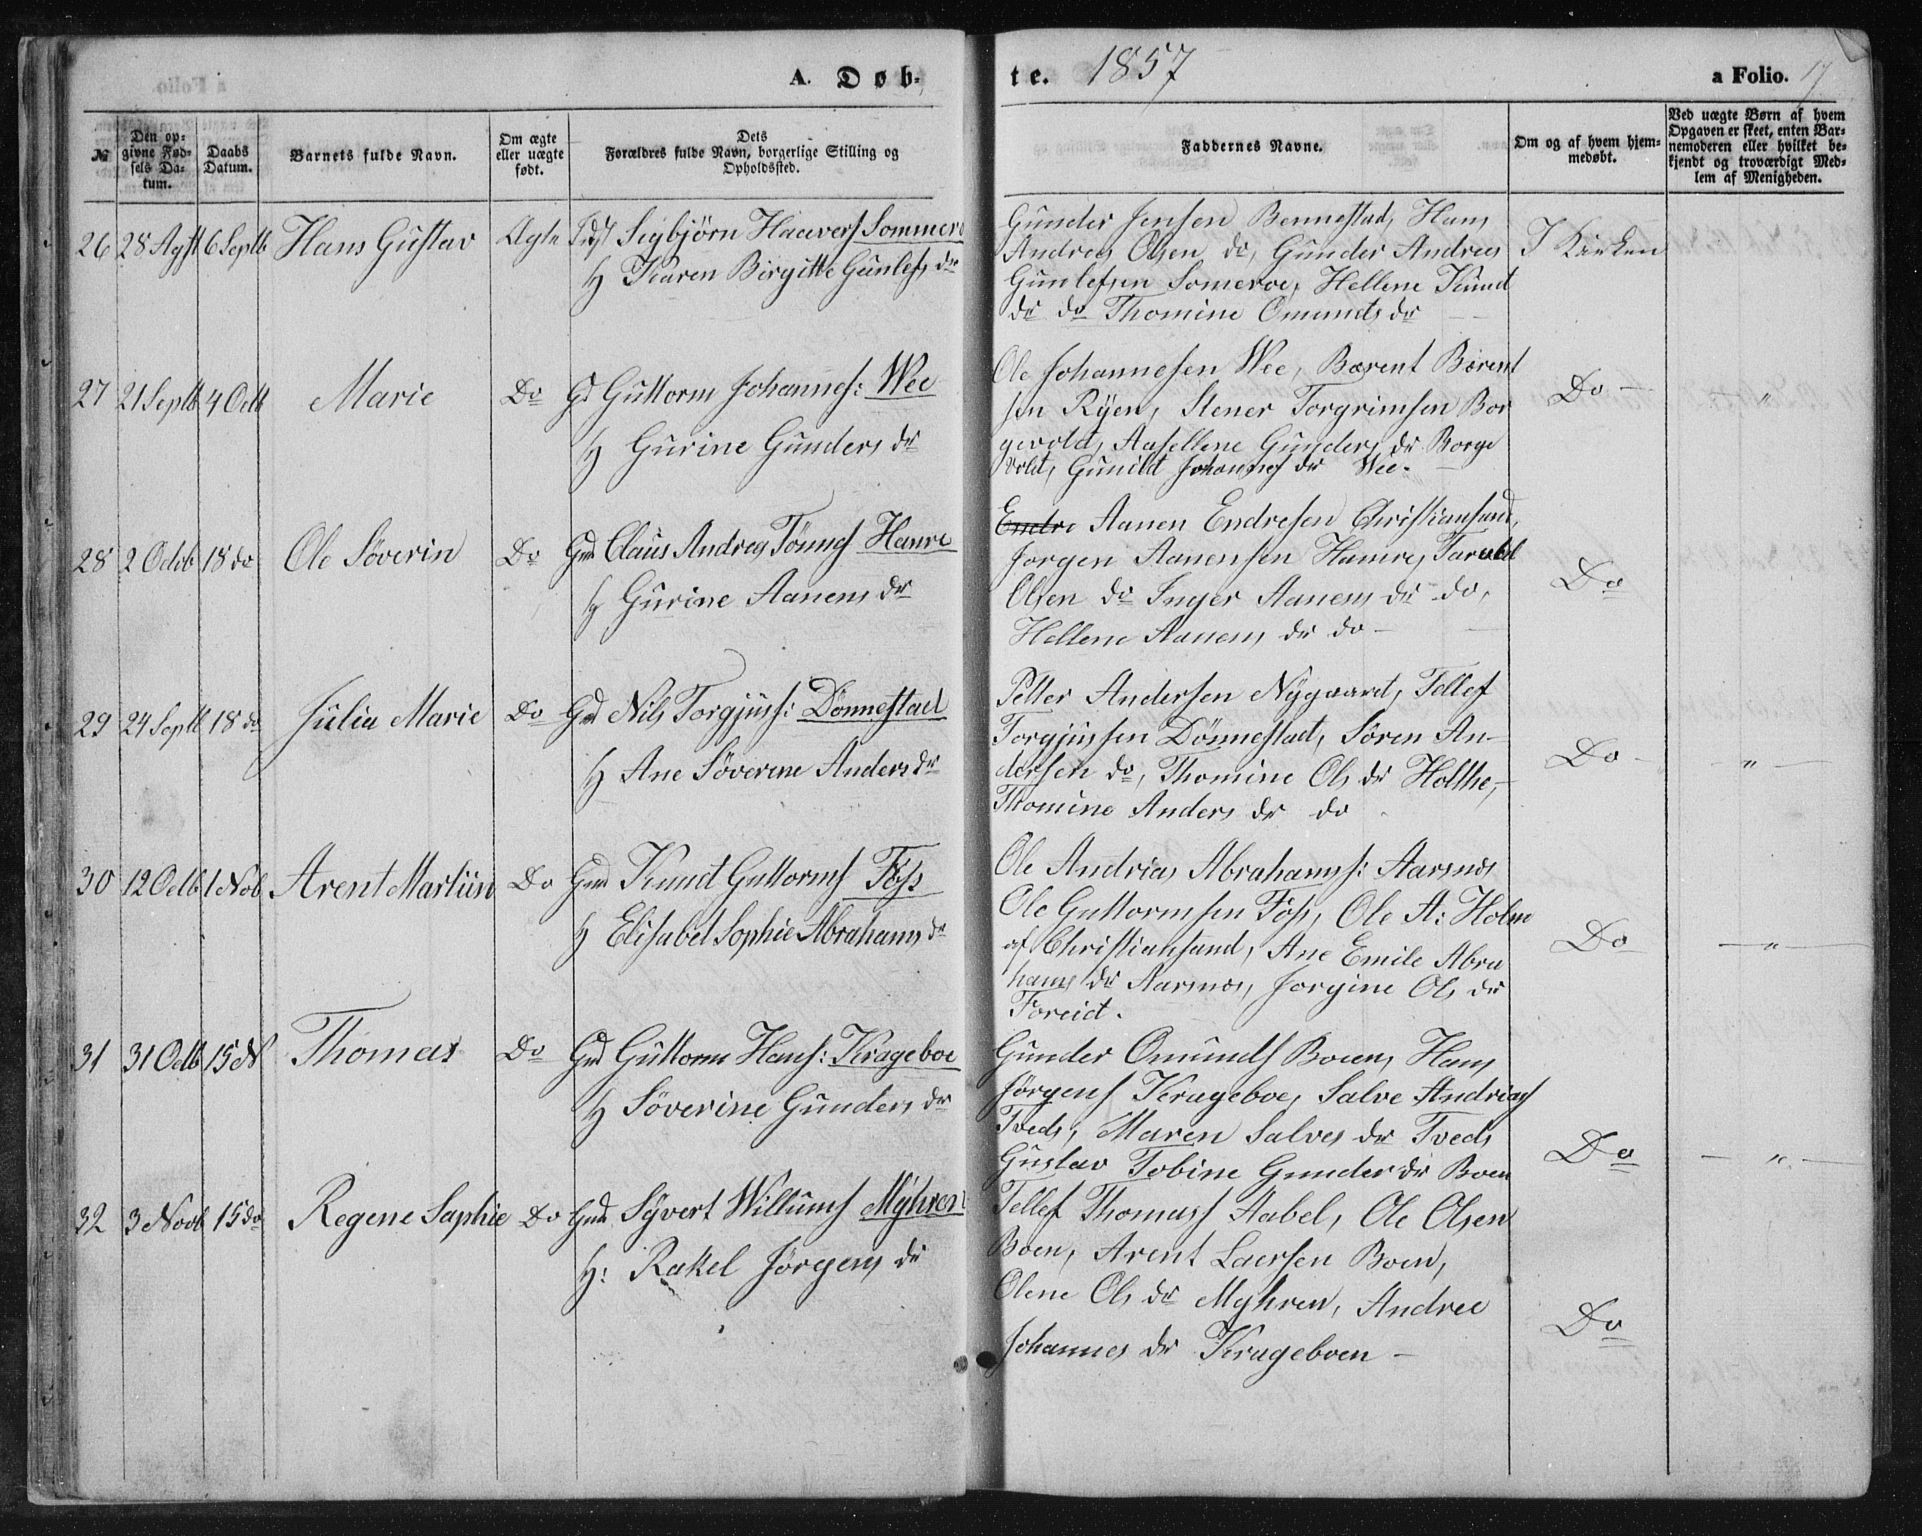 A. Døb-
te. 1857
a Folio. 17
№
Den opgivne Fødsels Datum.
Daabs Datum.
Barnets fulde Navn.
Om ægte eller uægte født.
Dets Forældres fulde Navn, borgerlige Stilling og Opholdssted.
Faddernes Navne.
Om og af hvem hjemmedøbt.
Ved uægte Børn af hvem Opgaven er skeet, enten Barnemoderen eller hvilket bekjendt og troværdigt Medlem af Menigheden.
26 28 Agst 6 Septb Hans Gustav Ægte Sigbjörn Haavers Sommero
H Karen Birgitte Gunlefs dr
Gunder Jensen Bennestad, Hans
Andreas Olsen do, Gunder Andreas
Gunlefsen Someroe, Hellene Knud
dr do Thomine Omunds dr
I Kirken
27 21 Septb 4 Octb Marie Do Gd Guttorm Johannes: Wee
H Gurine Gunders dr
Ole Johannesen Wee, Bærent Bærent
sen Ryen, Stener Torgrimsen Bor
gevold, Aasellene Gunders dr Borge
vold, Gunild Johannes dr Wee.
Do "
28 2 Octob 18 do Ole Söverin Do Gmd Claus Andreas Tönnes Hamre
H Gurine Aanens dr
Endre Aanen Endresen Christiansand,
Jorgen Aanensen Hamre, Tarald
Olsen do Inger Aanens dr do,
Hellene Aanens dr do -
Do
29 24 Septb 18 do Julia Marie Do Gmd Nils Torgjuss: Dönnestad
H Ane Söverine Anders dr
Petter Andersen Nygaard, Tellef
Torgjussen Dönnestad, Sören An-
dersen do, Thomine Ols dr Holthe,
Thomine Anders dr do
Do - "
30 12 Octb 1 Nob Arent Martiin Do Gmd Knud Guttorms Foss
H Elisabet Sophie Abrahams dr
Ole Andrias Abrahams: Aarsnes
Ole Guttormsen Foss, Ole A: Holm
af Christiansand, Ane Emile Abra
hams dr Aarsnes, Jorgine Ols dr
Foreid.
Do "
31 31 Octb 15 N Thomas Do Gmd Guttorm Hans: Krageboe
H Söverine Gunders dr
Gunder Omunds Boen, Hans
Jörgens Krageboe, Salve Andrias
Tveds, Maren Salves dr Tveds
Gustav Tobine Gunder dr Boen
Do "
32 3 Novb 15 do Regene Saphie Do Gmd Syvert Willums Myhren
H: Rakel Jörgens dr
Tellef Thomass Stabel, Ole Olsen
Boen, Arent Laersen Boen,
Olene Ols dr Myhren, Andree
Johannes dr Krageboen -
Do